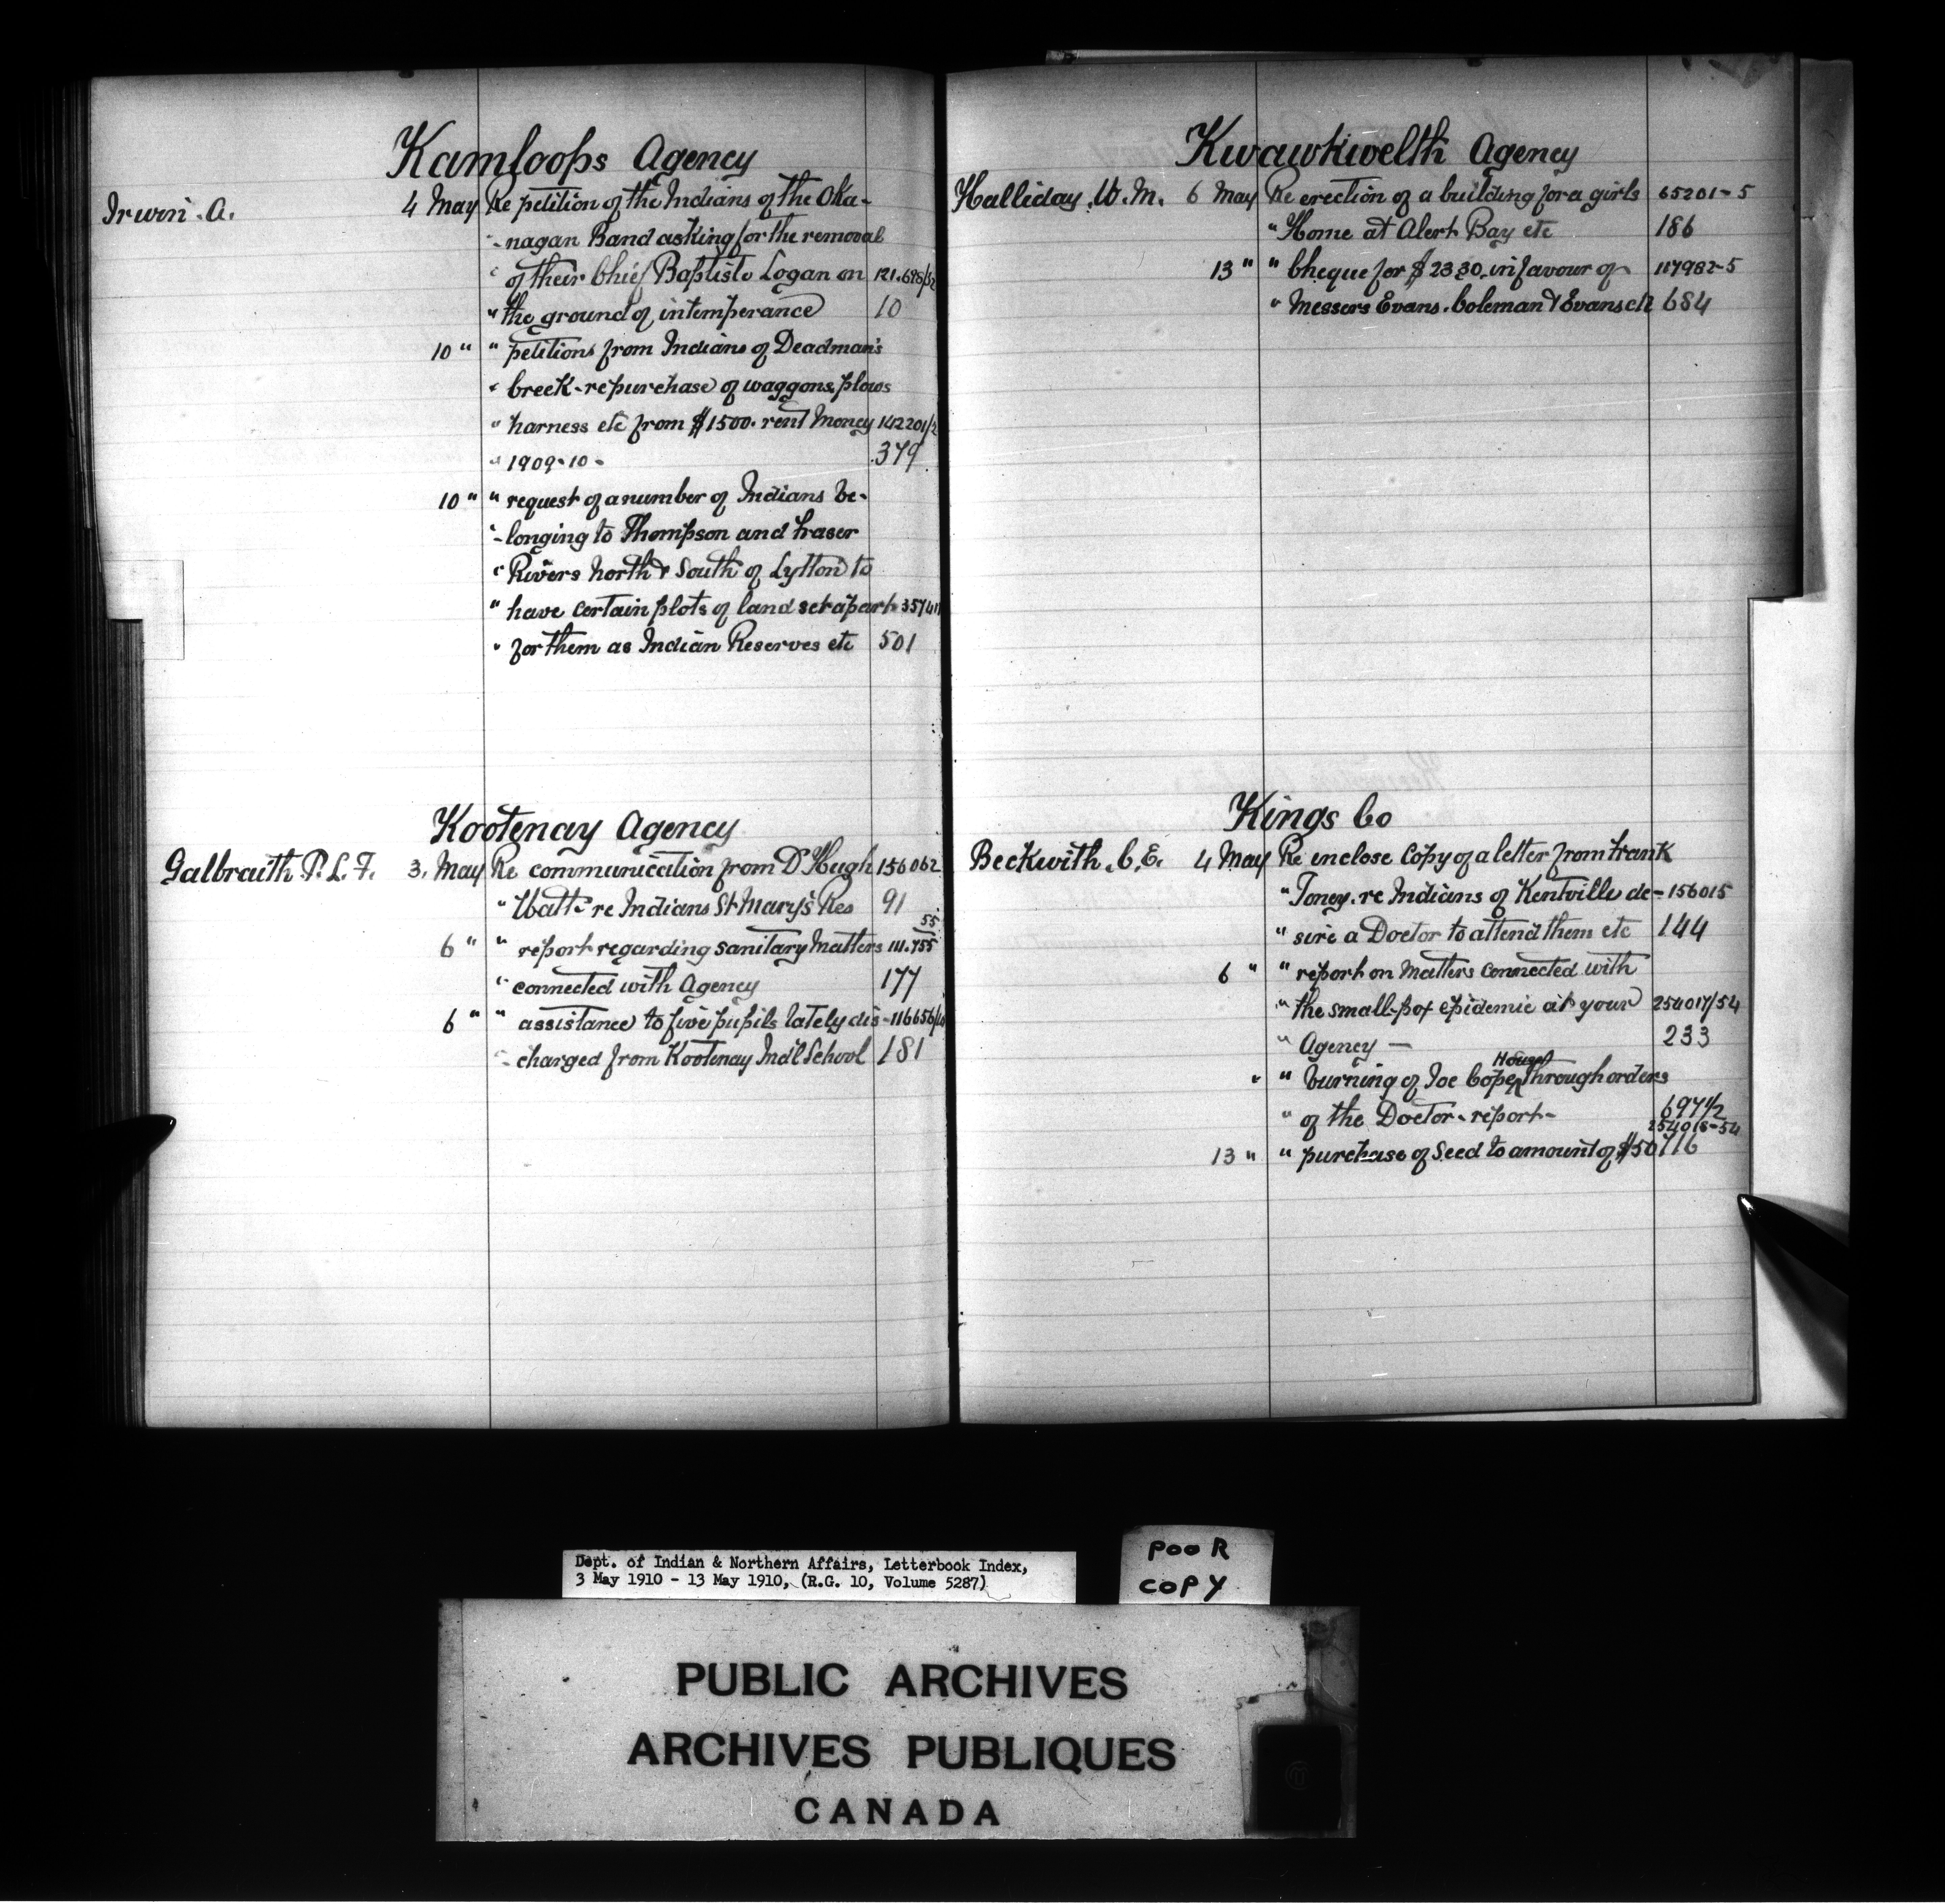 Kamloops Agency
Irwin. A. 4 May Re petition of the Indians of the Oka-
"-nagan Band asking for the removal
" of their Chief Baptiste Logan on 121.698/52
" the ground of intemperance 10
10 " " petitions from Indians of Deadman's
" Creek - re purchase of waggons, plows
" harness etc from $1500. rent Money 142201/2
" 1909-10 - 379
10 " " request of a number of Indians be-
"-longing to Thompson and Fraser
" Rivers North & South of Lytton to
" have certain plots of land set apart
" for them as Indian Reserves etc 501
Kootenay Agency
Galbraith P. L. F. 3. May Re communication from Dr Hugh 156062
" Watt - re Indians St Mary's Res 91
6 " " report regarding sanitary Matters 111.755 55
" connected with Agency 177
6 " " assistance to five pupils lately dis-
"-charged from Kootenay Ind'l School 181
Kwawkwelth Agency
Halliday. W. M. 6 May Re erection of a building for a girls 65201-5
" Home at Alert Bay etc 186
13 " " Cheque for $23.30. in favour of 117982-5
" Messers Evans. Coleman & Evans ch 684
Kings Co
Beckwith. C. E. 4 May Re enclose Copy of a letter from Frank
" Toney. re Indians of Kentville de- 156015
" sire a Doctor to attend them etc 144
6 " " report on Matters connected with
" the small-pox epidemic at your 254017/54
" Agency — 233
" " burning of Joe Cope House through orders
" of the Doctor - report - 697 1/2
254018-54
13 " " purchase of Seed to amount of $50 716
Dept. of Indian & Northern Affairs, Letterbook Index,
3 May 1910 - 13 May 1910, (R.G. 10, Volume 5287)
POOR
COPY
PUBLIC ARCHIVES
ARCHIVES PUBLIQUES
CANADA